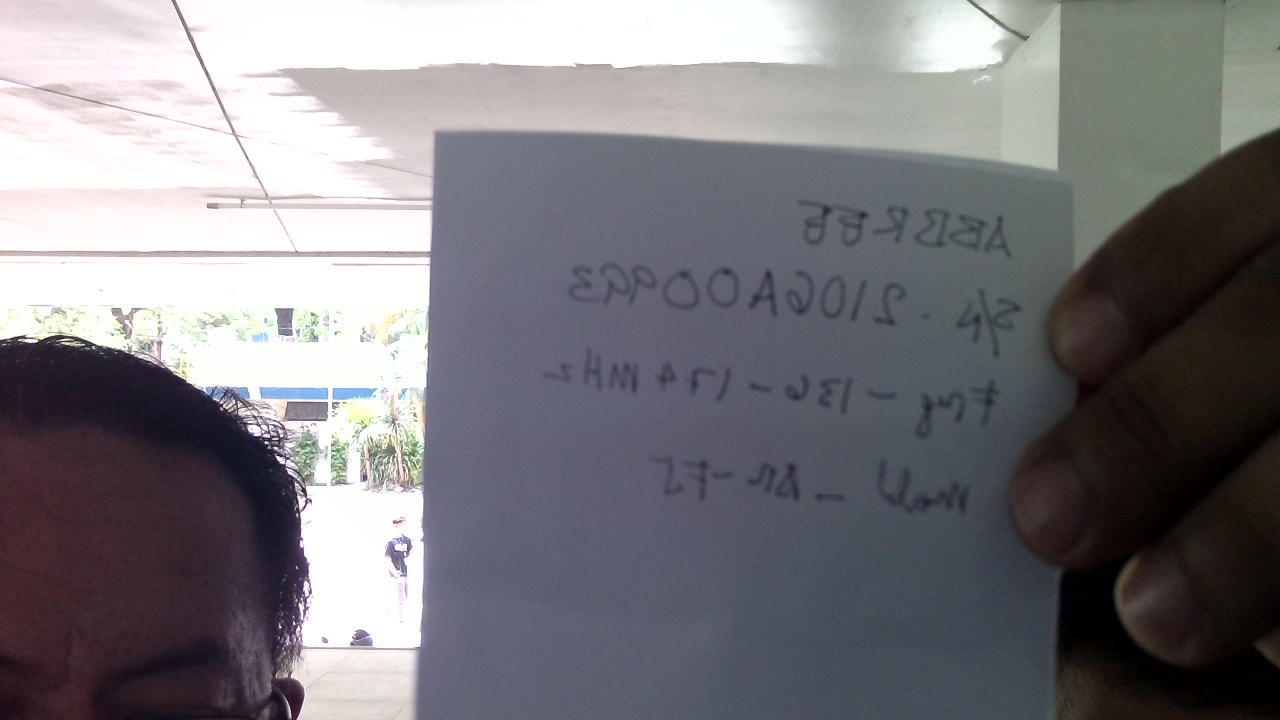 ABBREE
S/N. 2106A00993
Freq - 136 - 174 MHz
Model - AR-F5